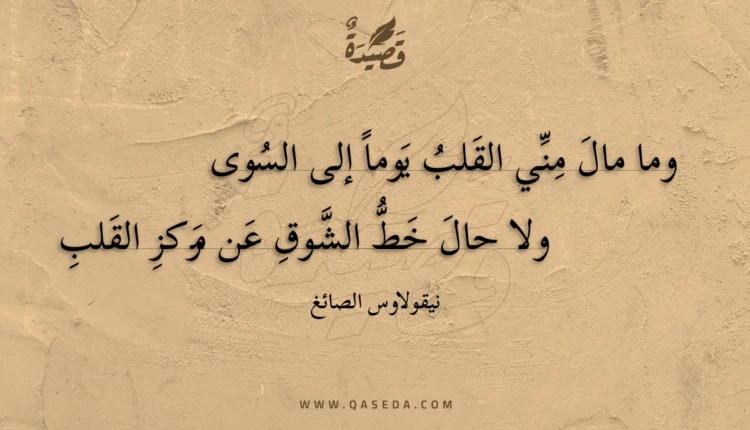 قَصِيدَةٌ
وما مالَ مِنِّي القَلبُ يَوماً إلى السُوى
ولا حالَ خَطُّ الشَّوقِ عَن مَركزِ القَلبِ
نيقولاوس الصائغ
WWW.QASEDA.COM